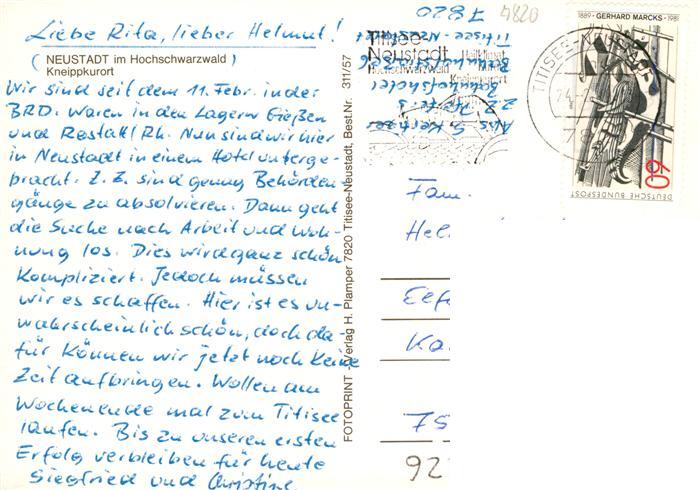 Liebe Rita, lieber Helmut!
( NEUSTADT im Hochschwarzwald )
Kneippkurort
Wir sind seit dem 11. Febr. in der
BRD. Waren in den Lagern Gießen
und Rastatt/Rh. Nun sind wir hier
in Neustadt in einem Hotel unterge-
bracht. Z. Z. sind genug Behörden-
gänge zu absolvieren. Dann geht
die Suche nach Arbeit und Woh-
nung los. Dies wird ganz schön
kompliziert. Jedoch müssen
wir es schaffen. Hier ist es un-
wahrscheinlich schön, doch da-
für können wir jetzt noch keine
Zeit aufbringen. Wollen am
Wochenende mal zum Titisee
laufen. Bis zu unseren ersten
Erfolg verbleiben für heute
Siegfried und Christine.
FOTOPRINT - Verlag H. Plamper 7820 Titisee-Neustadt, Best.Nr. 311/57
4820
7820
Titisee-Neustadt
Bahnhofshotel
Z. Z.
Abs. S.
Titisee-
Neustadt
Heilklimat.
Kneippkurort
Hochschwarzwald
TITISEE-NEUSTADT
24.
78
1889 · GERHARD MARCKS · 1981
60
DEUTSCHE BUNDESPOST
Fam.
Hel
Ka
75
92